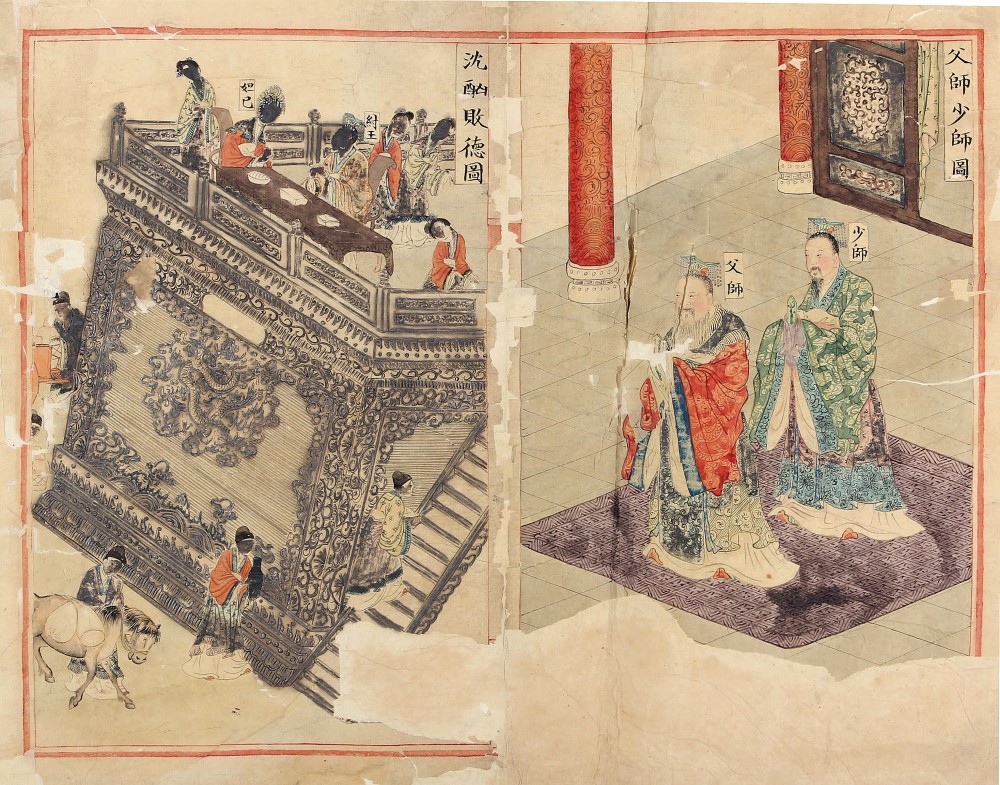 父師少師圖
少師
父師
沈酗敗德圖
紂王
妲己